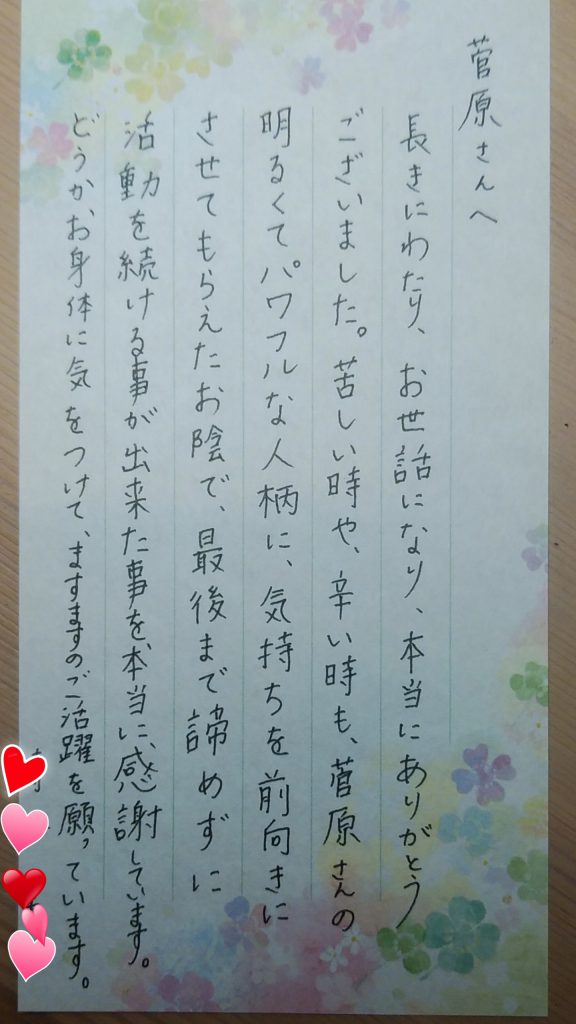 菅原さんへ
長きにわたり、お世話になり、本当にありがとう
ございました。苦しい時や、辛い時も、菅原さんの
明るくてパワフルな人柄に、気持ちを前向きに
させてもらえたお陰で、最後まで諦めずに
活動を続ける事が出来た事を、本当に、感謝しています。
どうか、お身体に気をつけて、ますますのご活躍を願っています。